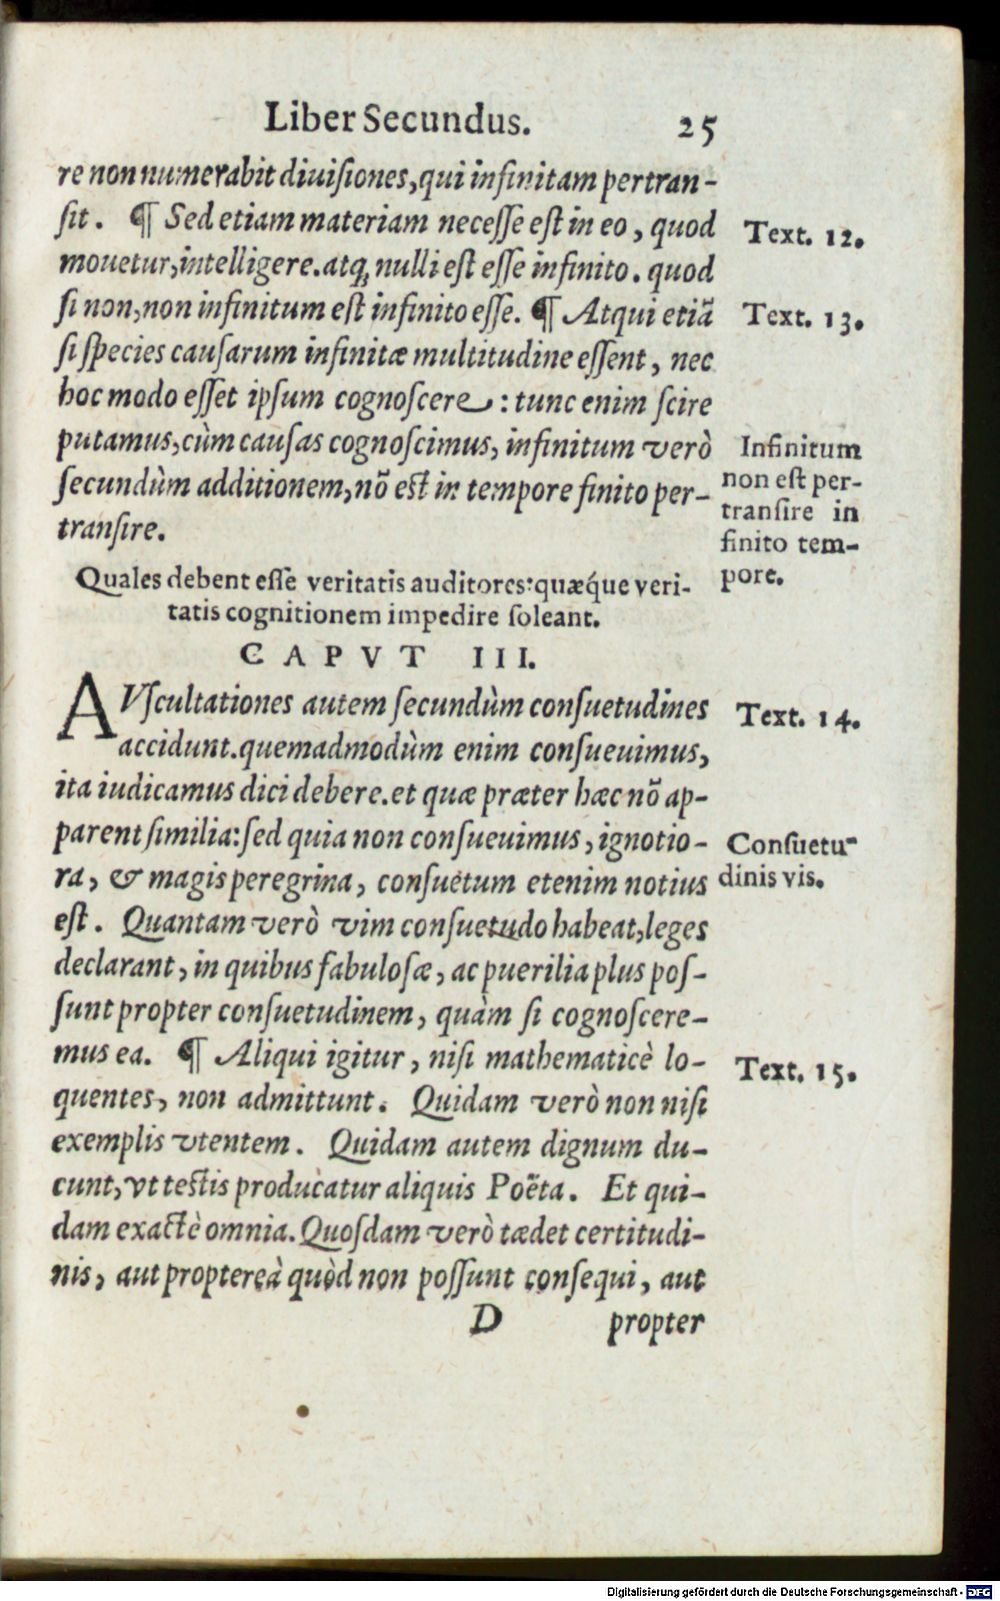 Liber Secundus. 25
re non numerabit diuiſiones, qui infinitam pertran-
ſit. ¶ Sed etiam materiam neceſſe eſt in eo, quod
mouetur, intelligere. atq; nulli eſt eſſe infinito. quod
ſi non, non infinitum eſt infinito eſſe. ¶ Atqui etiã
ſi ſpecies cauſarum infinitæ multitudine eſſent, nec
hoc modo eſſet ipſum cognoſcere : tunc enim ſcire
putamus, cùm cauſas cognoſcimus, infinitum verò
ſecundùm additionem, nõ eſt in tempore finito per-
tranſire.
Text. 12.
Text. 13.
Infinitum
non eſt per-
tranſire in
finito tem-
pore.
Quales debent eſſe veritatis auditores: quæq́ue veri-
tatis cognitionem impedire ſoleant.
CAPVT III.
AVſcultationes autem ſecundùm conſuetudines
accidunt. quemadmodùm enim conſueuimus,
ita iudicamus dici debere. et quæ præter hæc nõ ap-
parent ſimilia: ſed quia non conſueuimus, ignotio-
ra, & magis peregrina, conſuetum etenim notius
eſt. Quantam verò vim conſuetudo habeat, leges
declarant, in quibus fabuloſæ, ac puerilia plus poſ-
ſunt propter conſuetudinem, quàm ſi cognoſcere-
mus ea. ¶ Aliqui igitur, niſi mathematicè lo-
quentes, non admittunt. Quidam verò non niſi
exemplis vtentem. Quidam autem dignum du-
cunt, vt teſtis producatur aliquis Poëta. Et qui-
dam exactè omnia. Quoſdam verò tædet certitudi-
nis, aut propterea quòd non poſſunt conſequi, aut
Text. 14.
Conſuetu-
dinis vis.
Text. 15.
D propter
Digitalisierung gefördert durch die Deutsche Forschungsgemeinschaft - DFG